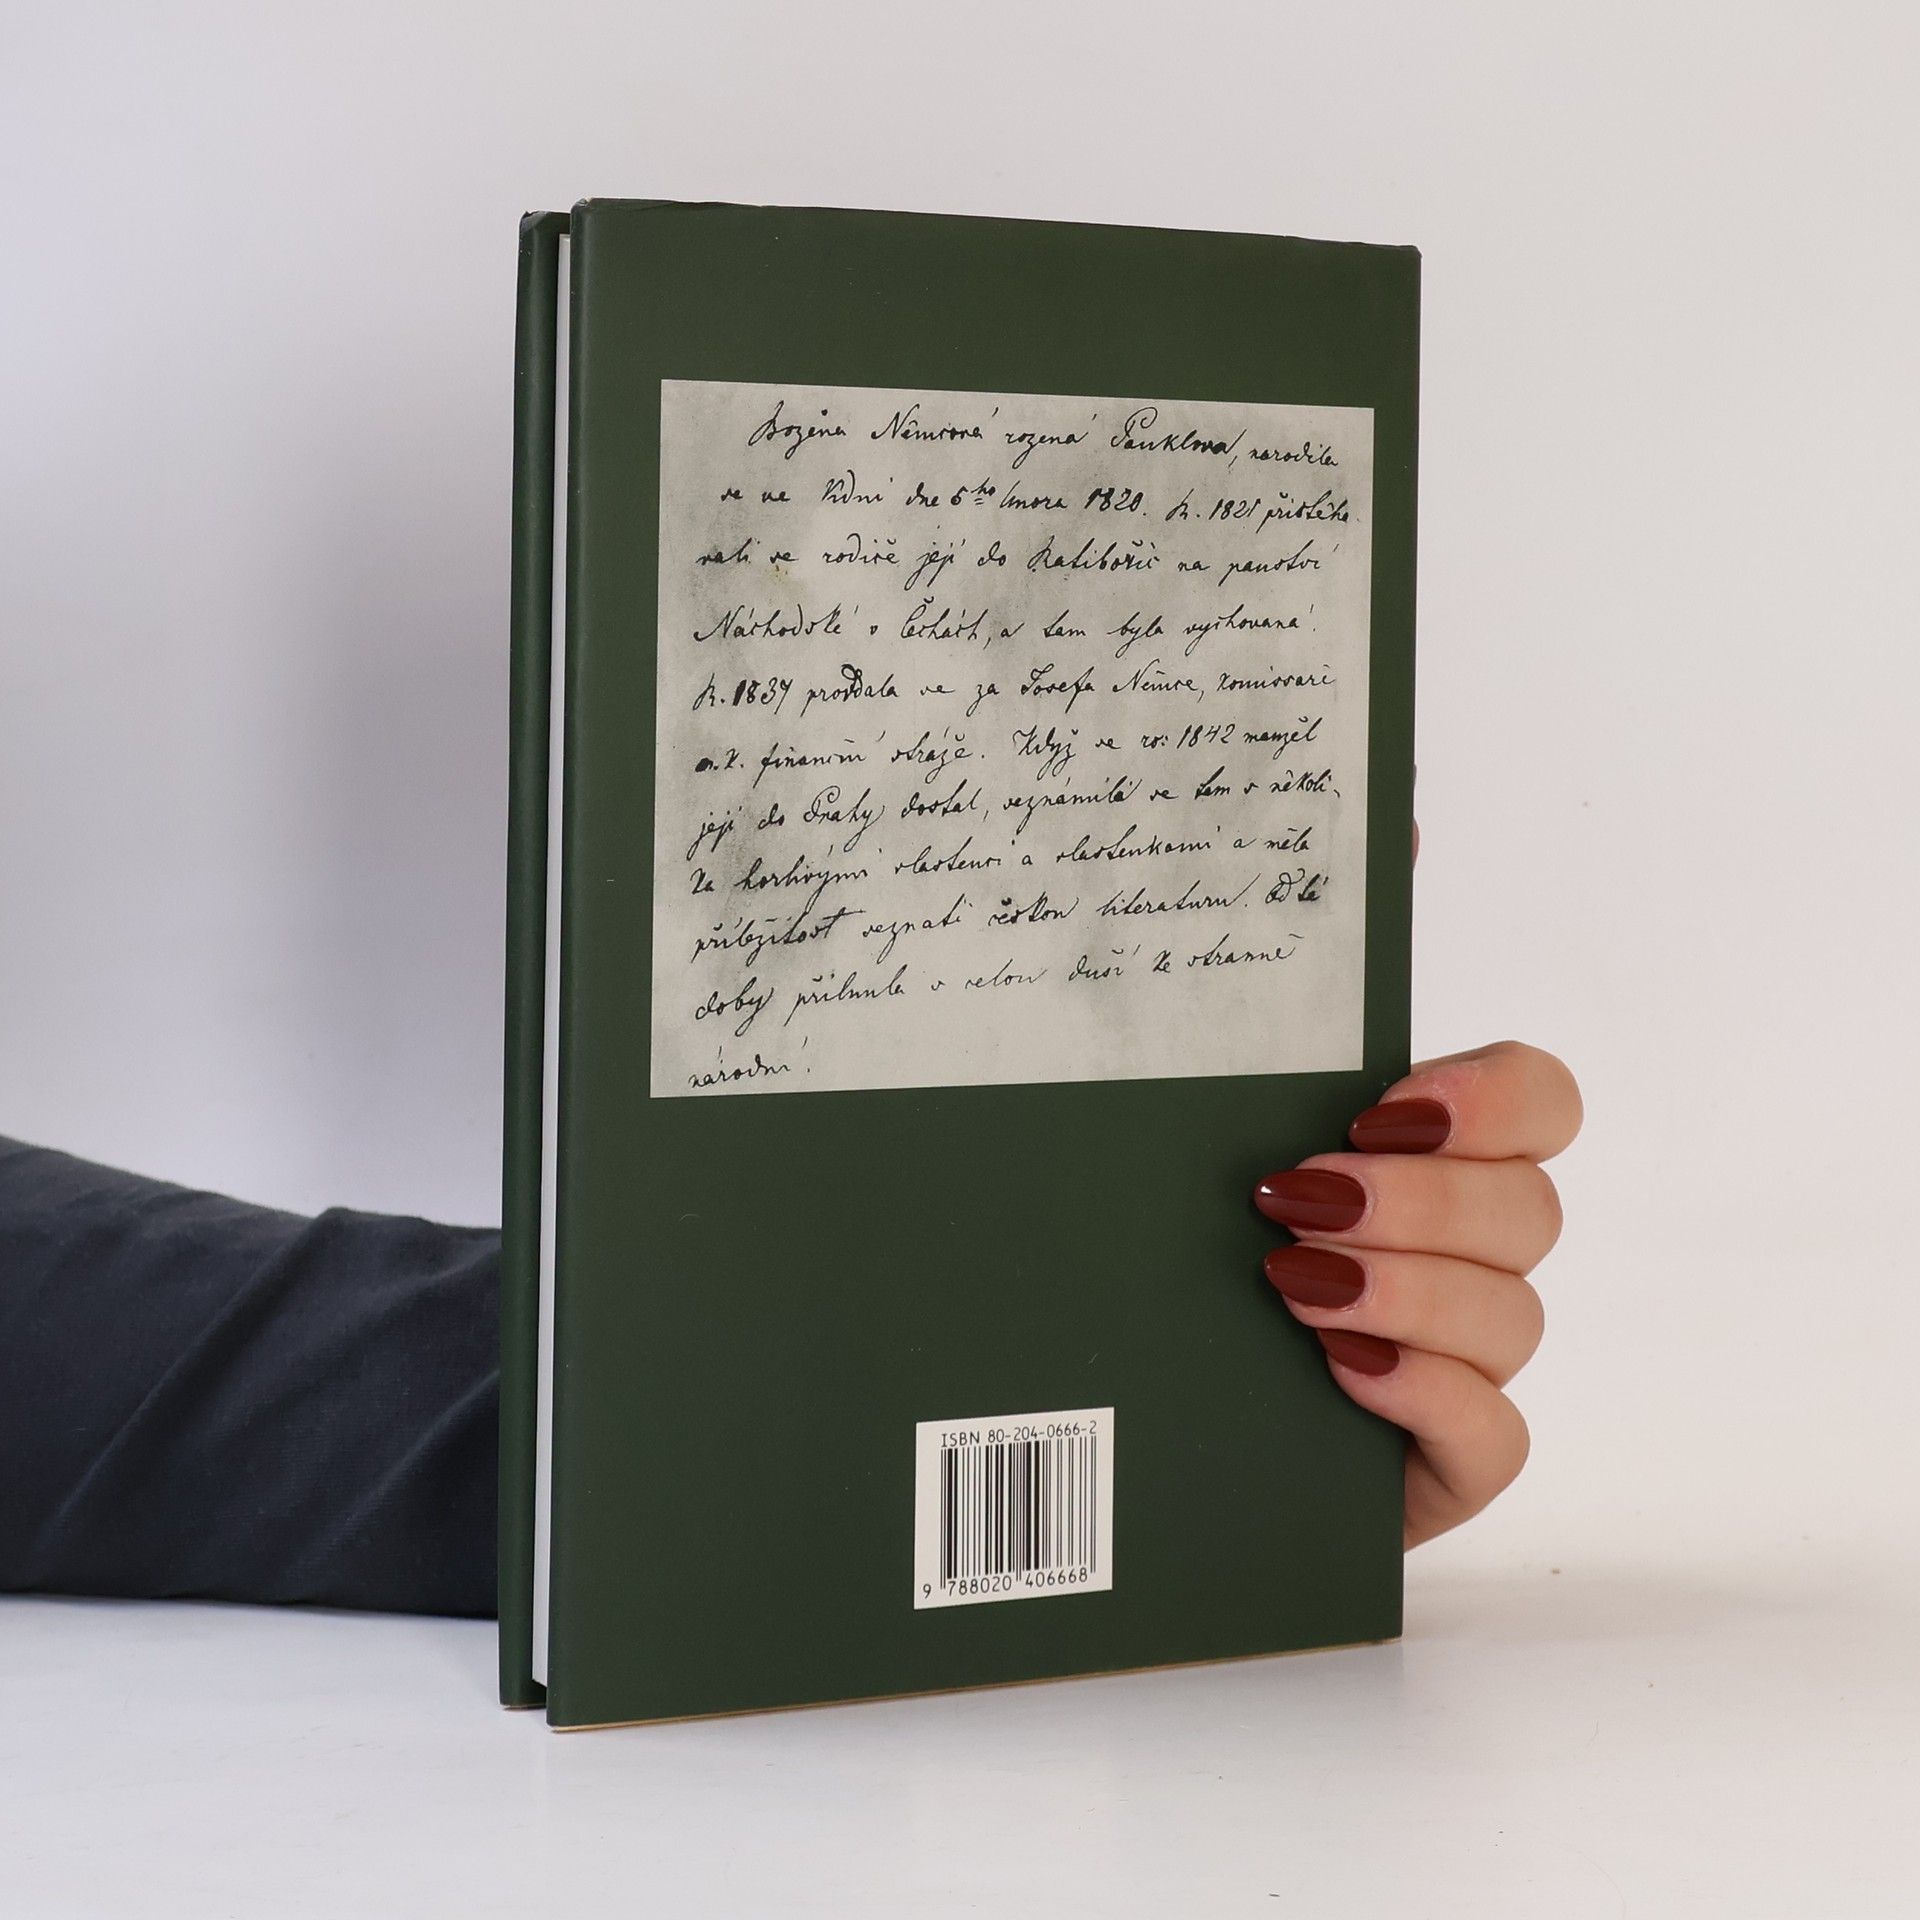 Božena Němcová rozená Panklova, narodila
se ve Vídni dne 5ho Února 1820. R. 1821 přistěho-
vali se rodiče její do Ratibořic na panství
Náchodské v Čechách, a tam byla vychovaná.
R. 1837 provdala se za Josefa Němce, komissaře
c.k. finanční stráže. Když se ro: 1842 manžel
její do Prahy dostal, seznámila se tam s několi-
ka horlivými vlastenci a vlastenkami a měla
příležitosť seznati českou literaturu. Od té
doby přilnula s celou duší ke straně
národní.
ISBN 80-204-0666-2
9 788020 406668